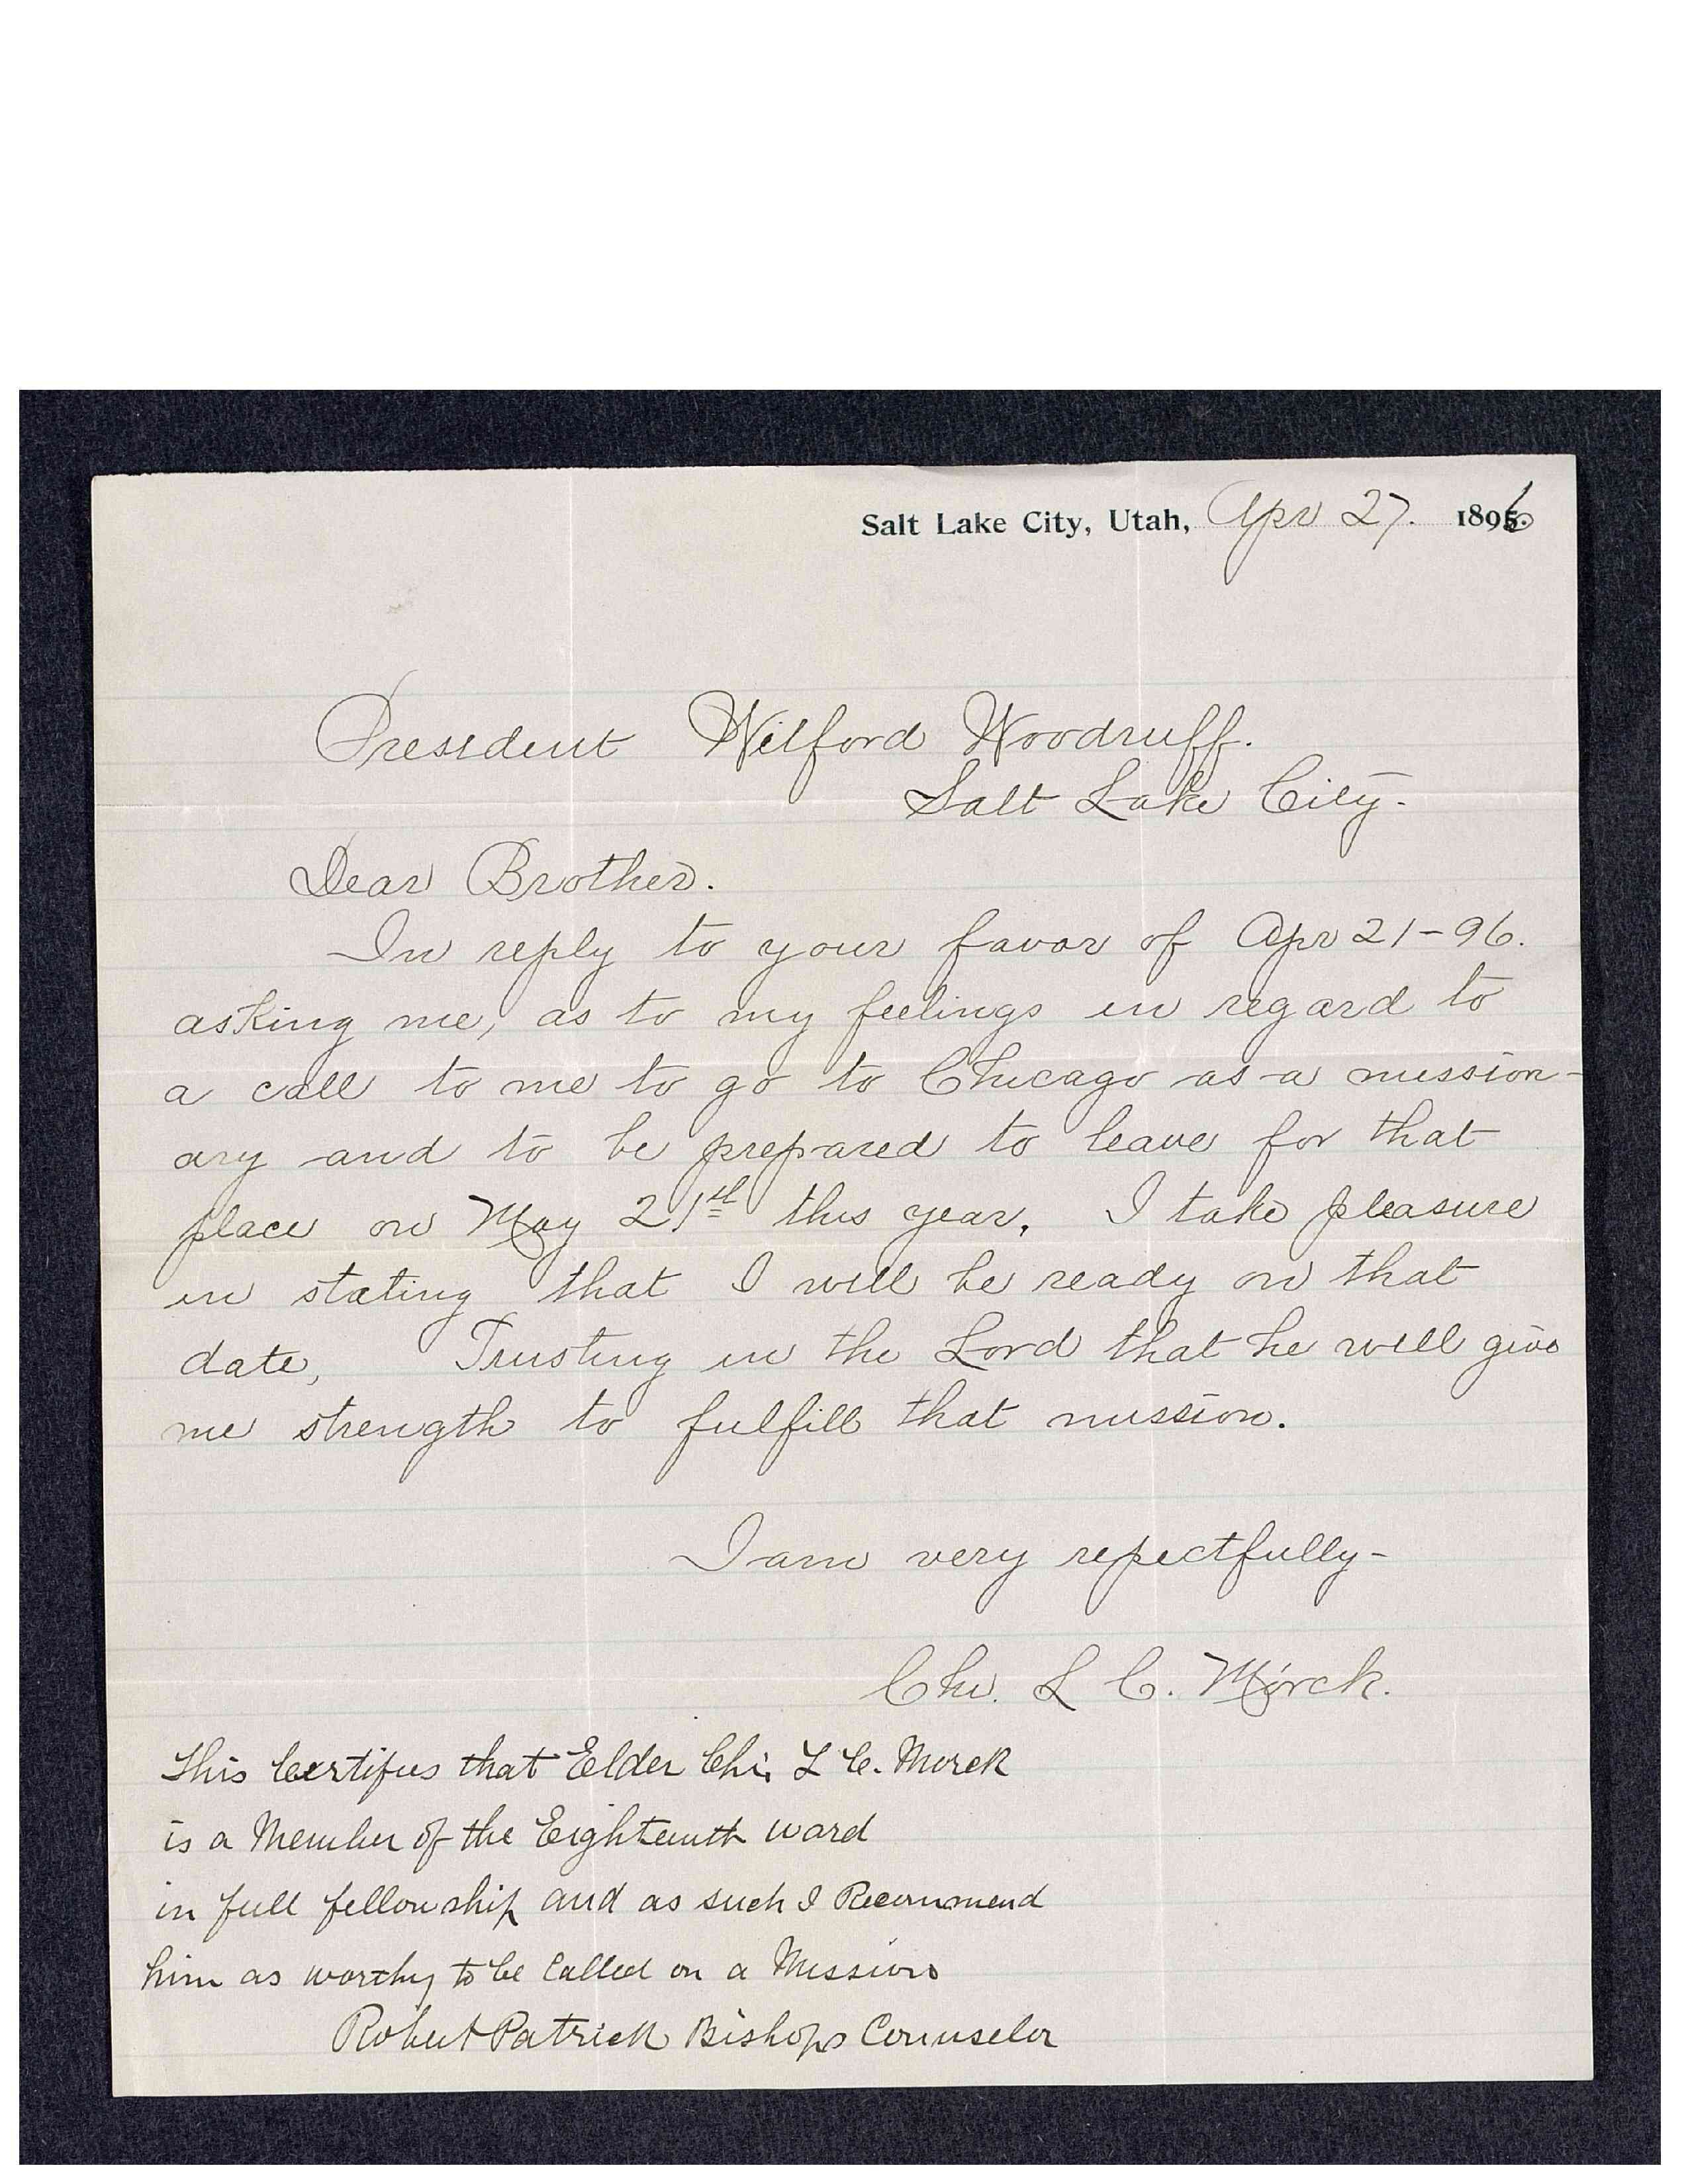 Salt Lake City, Utah, Apr 27. 1896.
President Wilford Woodruff.
Salt Lake City.
Dear Brother.
In reply to your favor of Apr 21-96.
asking me, as to my feelings in regard to
a call to me to go to Chicago as a mission-
ary and to be prepared to leave for that
place on May 21st this year. I take pleasure
in stating that I will be ready on that
date, Trusting in the Lord that he will give
me strength to fulfill that mission.
I am very repectfully-
Chr. L C. Mörck.
This Certifies that Elder Chr. L C. Morck
is a Member of the Eighteenth ward
in full fellowship and as such I Recommend
him as worthy to be Called on a Mission
Robert Patrick Bishops Counselor